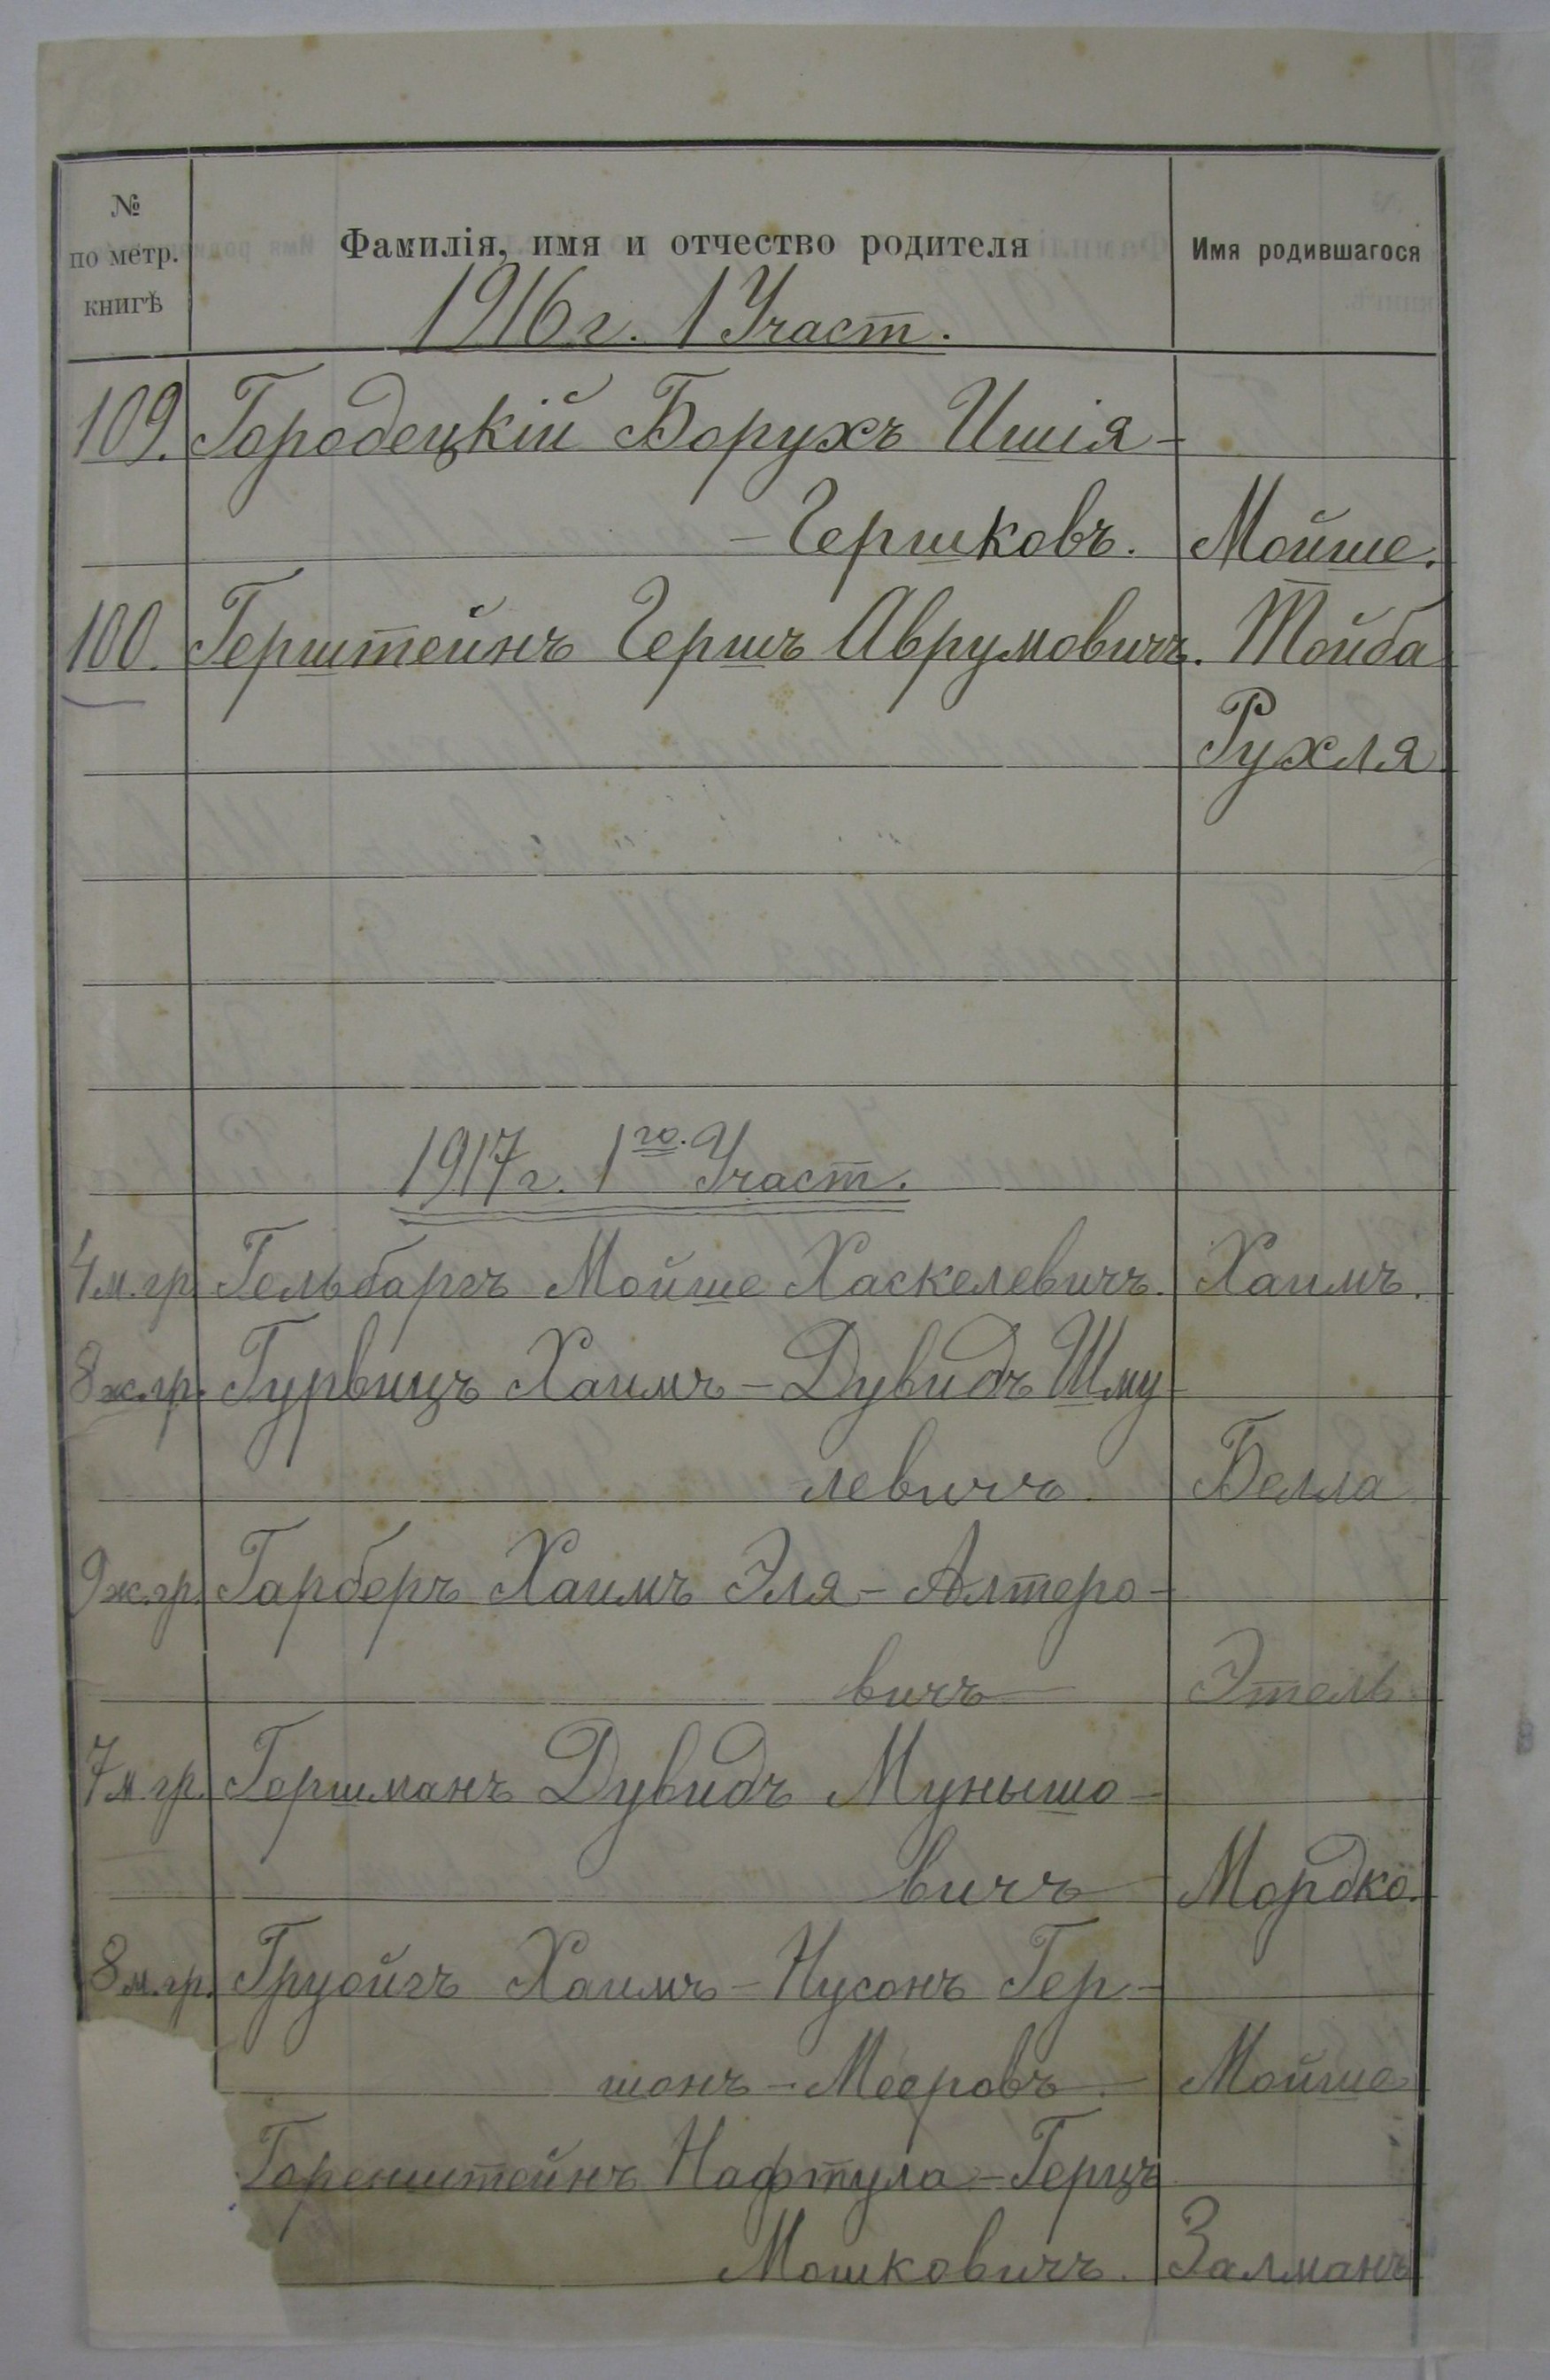 № по метр. книгѣ
Фамилія, имя и отчество родителя
Имя родившагося
1916 г. 1 Участ.
109. Городецкій Борухъ Ишія-
- Гершковъ. Мойше.
100. Герштейнъ Гершъ Аврумовичъ. Тойба
Рухля
1917 г. 1го. Участ.
4 м. гр. Гельбаргъ Мойше Хаскелевичъ. Хаимъ.
8 ж. гр. Гурвицъ Хаимъ-Дувидъ Шму
левичъ Белла
9 ж. гр. Гарберъ Хаимъ Эля-Алтеро-
вичъ Этель
7 м. гр. Гершманъ Дувидъ Мунышо-
вичъ Мордко.
8 м. гр. Хаимъ-Нусонъ Гер-
шонъ-Мееровъ. Мойше
Горенштейнъ Нафтула-Герцъ
Мошковичъ. Залманъ